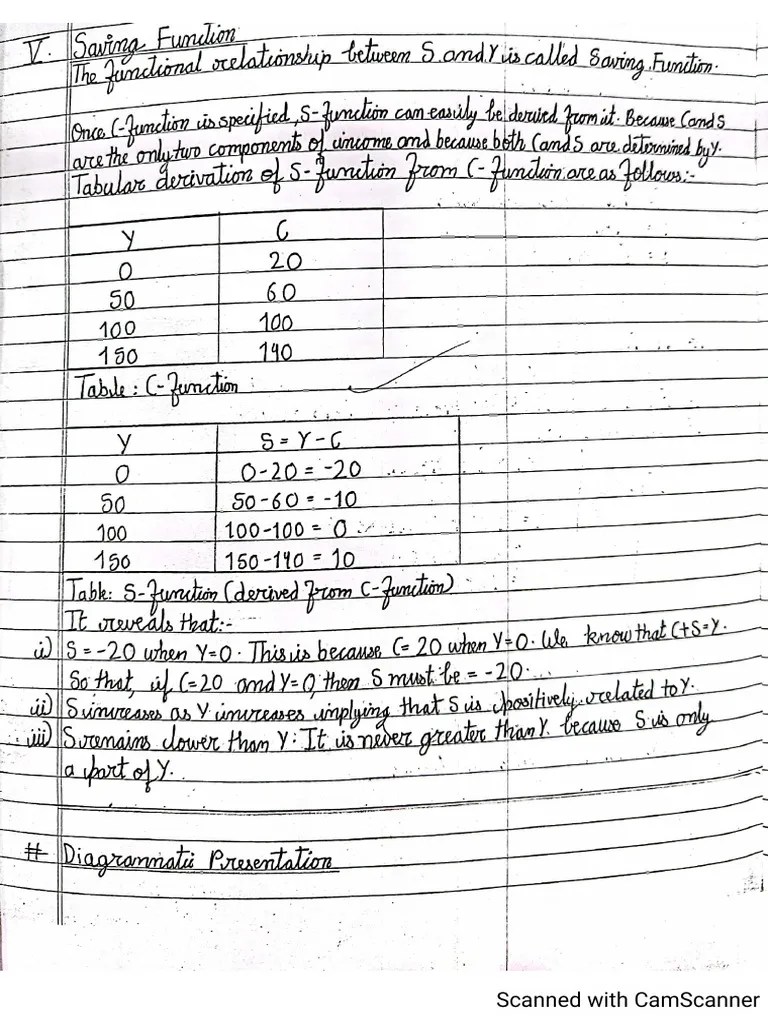 V. Saving Function
The functional relationship between S and Y is called Saving Function.
Once C-function is specified, S-function can easily be derived from it. Because C and S
are the only two components of income and because both C and S are determined by Y.
Tabular derivation of S-function from C-function are as follows:-
Y C
0 20
50 60
100 100
150 140
Table: C-function
Y S = Y - C
0 0-20 = -20
50 50-60 = -10
100 100-100 = 0
150 150-140 = 10
Table: S-function (derived from C-function)
It reveals that:-
i) S = -20 when Y=0. This is because C= 20 when Y=0. We know that C+S=Y.
So that, if C=20 and Y=0, then S must be = -20.
ii) S increases as Y increases implying that S is positively related to Y.
iii) S remains lower than Y. It is never greater than Y because S is only
a part of Y.
# Diagrammatic Presentation
Scanned with CamScanner